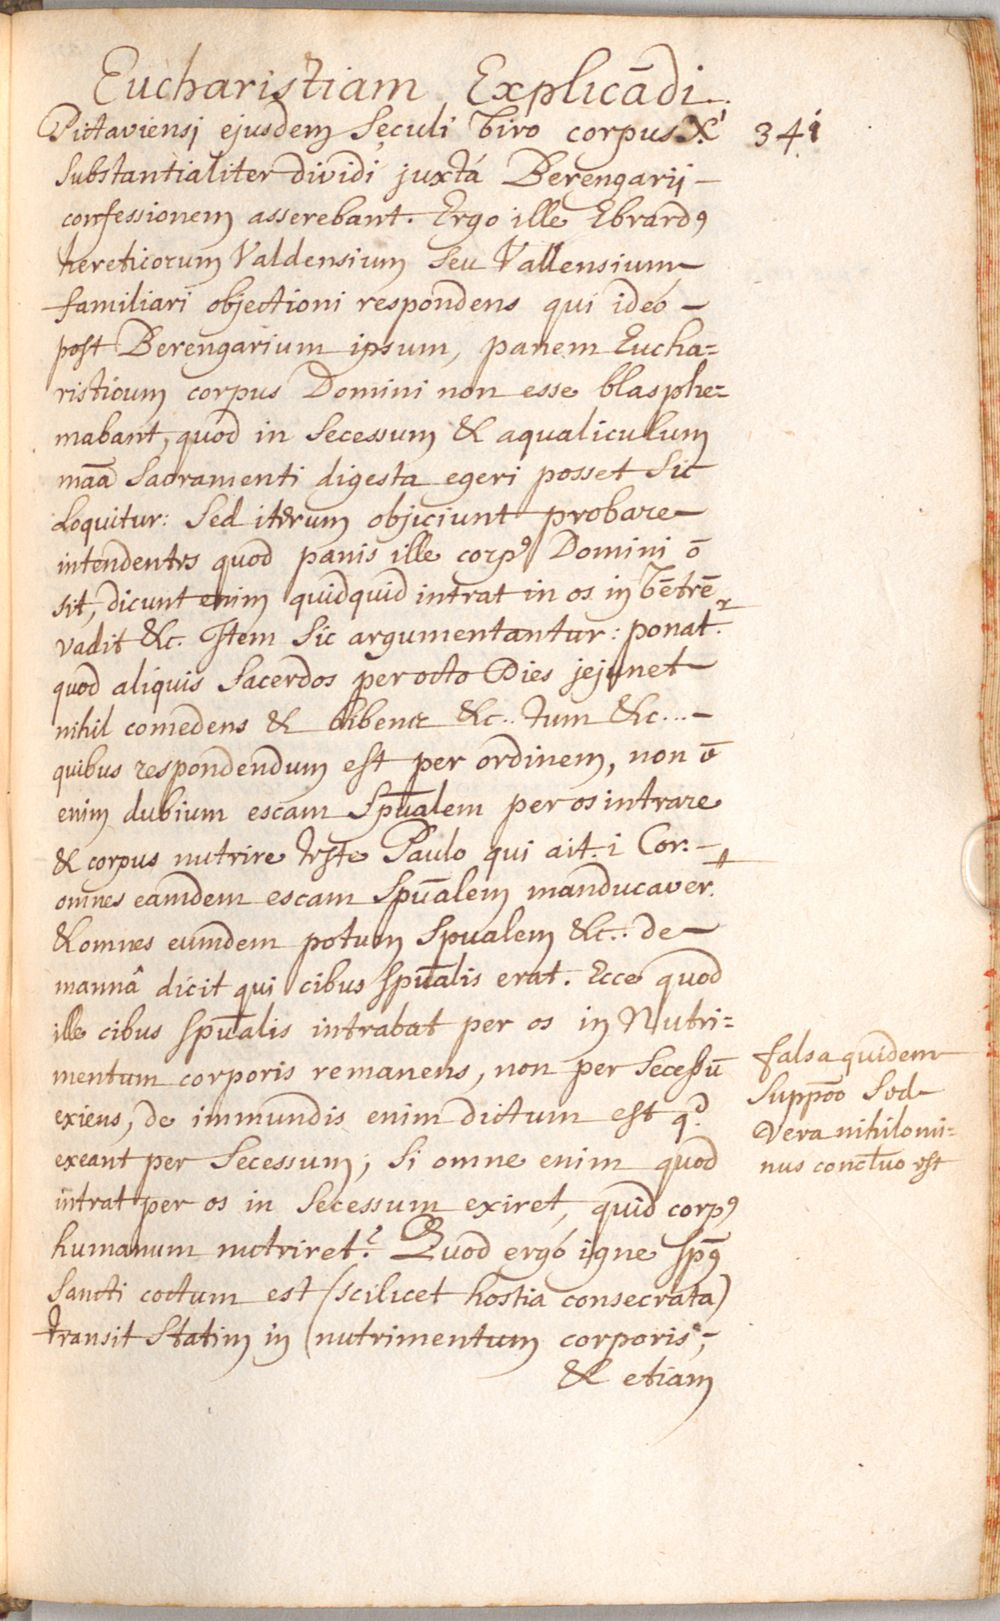 Eucharistiam Explicādi
Pictaviensi ejusdem seculi viro corpus X.ⁱ 341
substantialiter dividi juxtá Berengarij –
confessionem asserebant. Ergo ille Ebrardꝰ
hereticorum Valdensium seu Vallensium –
familiari objectioni respondens qui ideó –
post Berengarium ipsum, panem Eucha=
risticum corpus Domini non esse blasphe=
mabant, quod in secessum & aqualiculum
māā Sacramenti digesta egeri posset sic
loquitur: sed iterum objiciunt probare –
intendentes quod panis ille corpꝰ Domini ō
sit, dicunt enim quidquid intrat in os in vētrē
vadit &c. Item sic argumentantur: ponat.ʳ
quod aliquis Sacerdos per octo Dies jejunet –
nihil comedens & bibens &c.. tum &c... –
quibus respondendum est per ordinem, non ē
enim dubium escam Spūalem per os intrare
& corpus nutrire teste Paulo qui ait. i Cor. –
omnes eamdem escam Spūalem manducaver.ᵗ
& omnes eumdem potum Spualem &c.. de –
mannâ dicit qui cibus spūalis erat. Ecce quod
ille cibus spūalis intrabat per os in Nutri=
mentum corporis remanens, non per secessū
exiens, de immundis enim dictum est q.ᵈ
exeant per secessum; si omne enim quod
intrat per os in secessum exiret, quid corpꝰ
humanum nutriret? Quod ergó igne Spūs
Sancti coctum est (scilicet hostia consecrata)
transit statim in nutrimentum corporis, –
& etiam
falsa quidem
suppōo sed
vera nihilomi=
nus concluo est